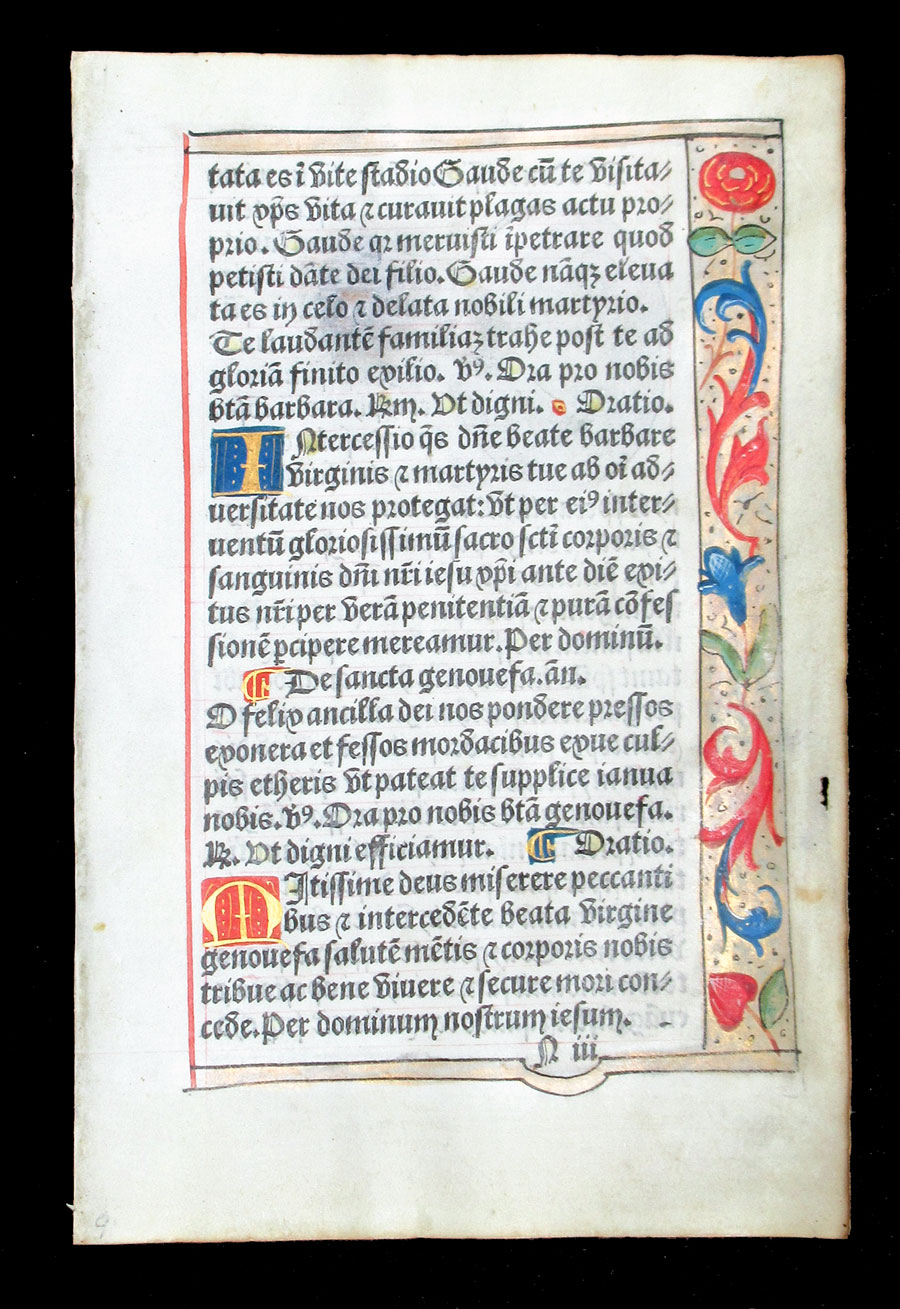 tata es ī vite stadio Gaude cū te visita⸗
uit xp̄s vita ⁊ curauit plagas actu pro⸗
prio. Gaude qꝛ meruisti īpetrare quod
petisti dāte dei filio. Gaude nāqꝫ eleua
ta es in celo ⁊ delata nobili martyrio.
Te laudantē familiaꝫ trahe post te ad
gloriā finito exilio. v̄ꝰ. Ora pro nobis
btā barbara. Rm̄. Vt digni. Oratio.
INtercessio q̄s dn̄e beate barbare
virginis ⁊ martyris tue ab oī ad⸗
uersitate nos protegat: vt per eiꝰ inter⸗
uentū gloriosissimū sacro sctī corporis ⁊
sanguinis dn̄i nr̄i iesu xp̄i ante diē exi⸗
tus nr̄i per verā penitentiā ⁊ purā cōfes
sionē ꝑcipere mereamur. Per dominū.
¶ De sancta genouefa. ān.
O felix ancilla dei nos pondere pressos
exonera et fessos mordacibus exue cul⸗
pis etheris vt pateat te supplice ianua
nobis. v̄ꝰ. Ora pro nobis btā genouefa.
R̄. Vt digni efficiamur. ¶ Oratio.
MItissime deus miserere peccanti
bus ⁊ intercedēte beata virgine
genouefa salutē mētis ⁊ corporis nobis
tribue ac bene viuere ⁊ secure mori con⸗
cede. Per dominum nostrum iesum.
N iii
9